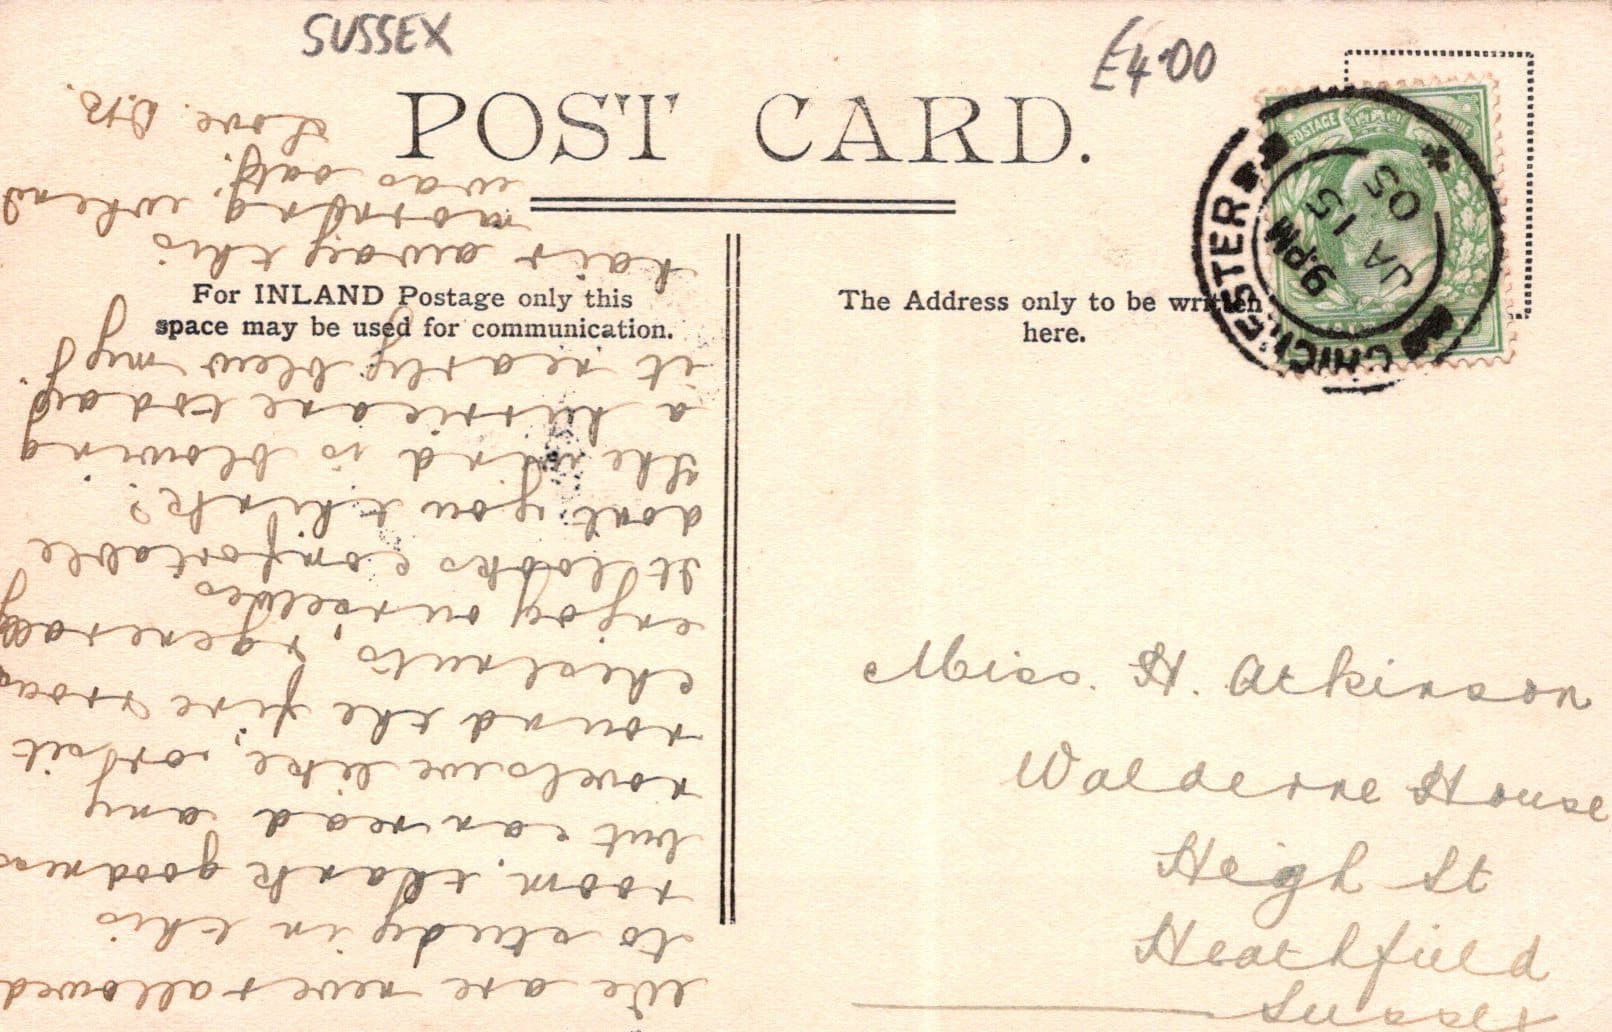 SUSSEX
£4.00
POST CARD.
For INLAND Postage only this
space may be used for communication.
The Address only to be written
here.
POSTAGE
CHICHESTER
9 PM
JA 15
05
Miss. H. Atkinson
Walderne House
Heigh St
Heathfield
Sussex
We are never allowed
to study in this
room, thank goodness
but can read any
novels we like, or sit
round the fire roast
chestnuts, & generally
enjoy ourselves
It looks comfortable
dont you think?
The wind is blowing
a hurricane today
it nearly blew my
hair away this
morning, when I
was out.
Love.